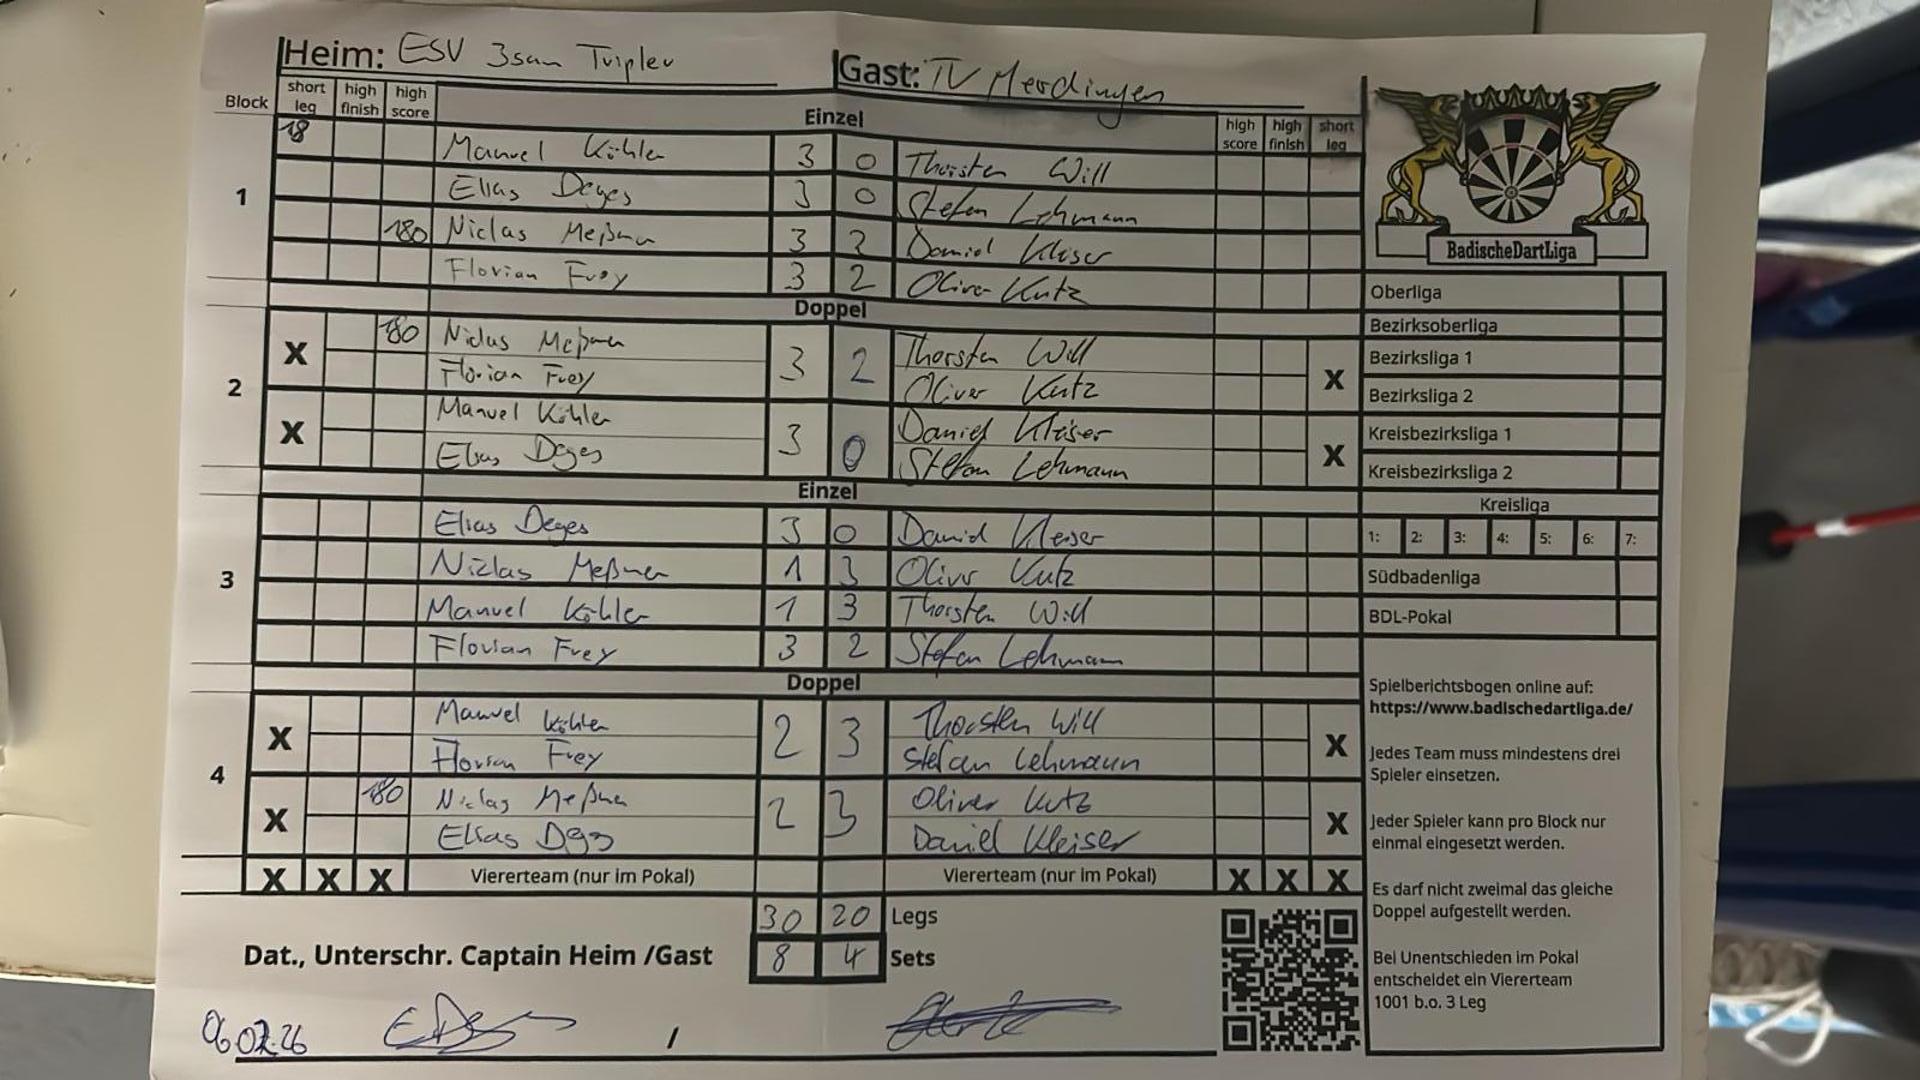 Heim: ESV 3sam Tripler Gast: TV Merdingen
Block short leg high finish high score Einzel high score high finish short leg
1
18 Manuel Köhler 3 0 Thorsten Will
Elias Deges 3 0 Stefan Lehmann
180 Niclas Meßmer 3 2 Daniel Kleiser
Florian Frey 3 2 Oliver Kutz
Doppel
2
X 180 Niclas Meßmer 3 2 Thorsten Will X
Florian Frey Oliver Kutz
X Manuel Köhler 3 0 Daniel Kleiser X
Elias Deges Stefan Lehmann
Einzel
3
Elias Deges 3 0 Daniel Kleiser
Niclas Meßmer 1 3 Oliver Kutz
Manuel Köhler 1 3 Thorsten Will
Florian Frey 3 2 Stefan Lehmann
Doppel
4
X Manuel Köhler 2 3 Thorsten Will X
Florian Frey Stefan Lehmann
X 180 Niclas Meßmer 2 3 Oliver Kutz X
Elias Daniel Kleiser
X X X Viererteam (nur im Pokal) Viererteam (nur im Pokal) X X X
30 20 Legs
Dat., Unterschr. Captain Heim /Gast 8 4 Sets
06.02.26 /
BadischeDartLiga
Oberliga
Bezirksoberliga
Bezirksliga 1
Bezirksliga 2
Kreisbezirksliga 1
Kreisbezirksliga 2
Kreisliga
1: 2: 3: 4: 5: 6: 7:
Südbadenliga
BDL-Pokal
Spielberichtsbogen online auf:
https://www.badischedartliga.de/
Jedes Team muss mindestens drei
Spieler einsetzen.
Jeder Spieler kann pro Block nur
einmal eingesetzt werden.
Es darf nicht zweimal das gleiche
Doppel aufgestellt werden.
Bei Unentschieden im Pokal
entscheidet ein Viererteam
1001 b.o. 3 Leg